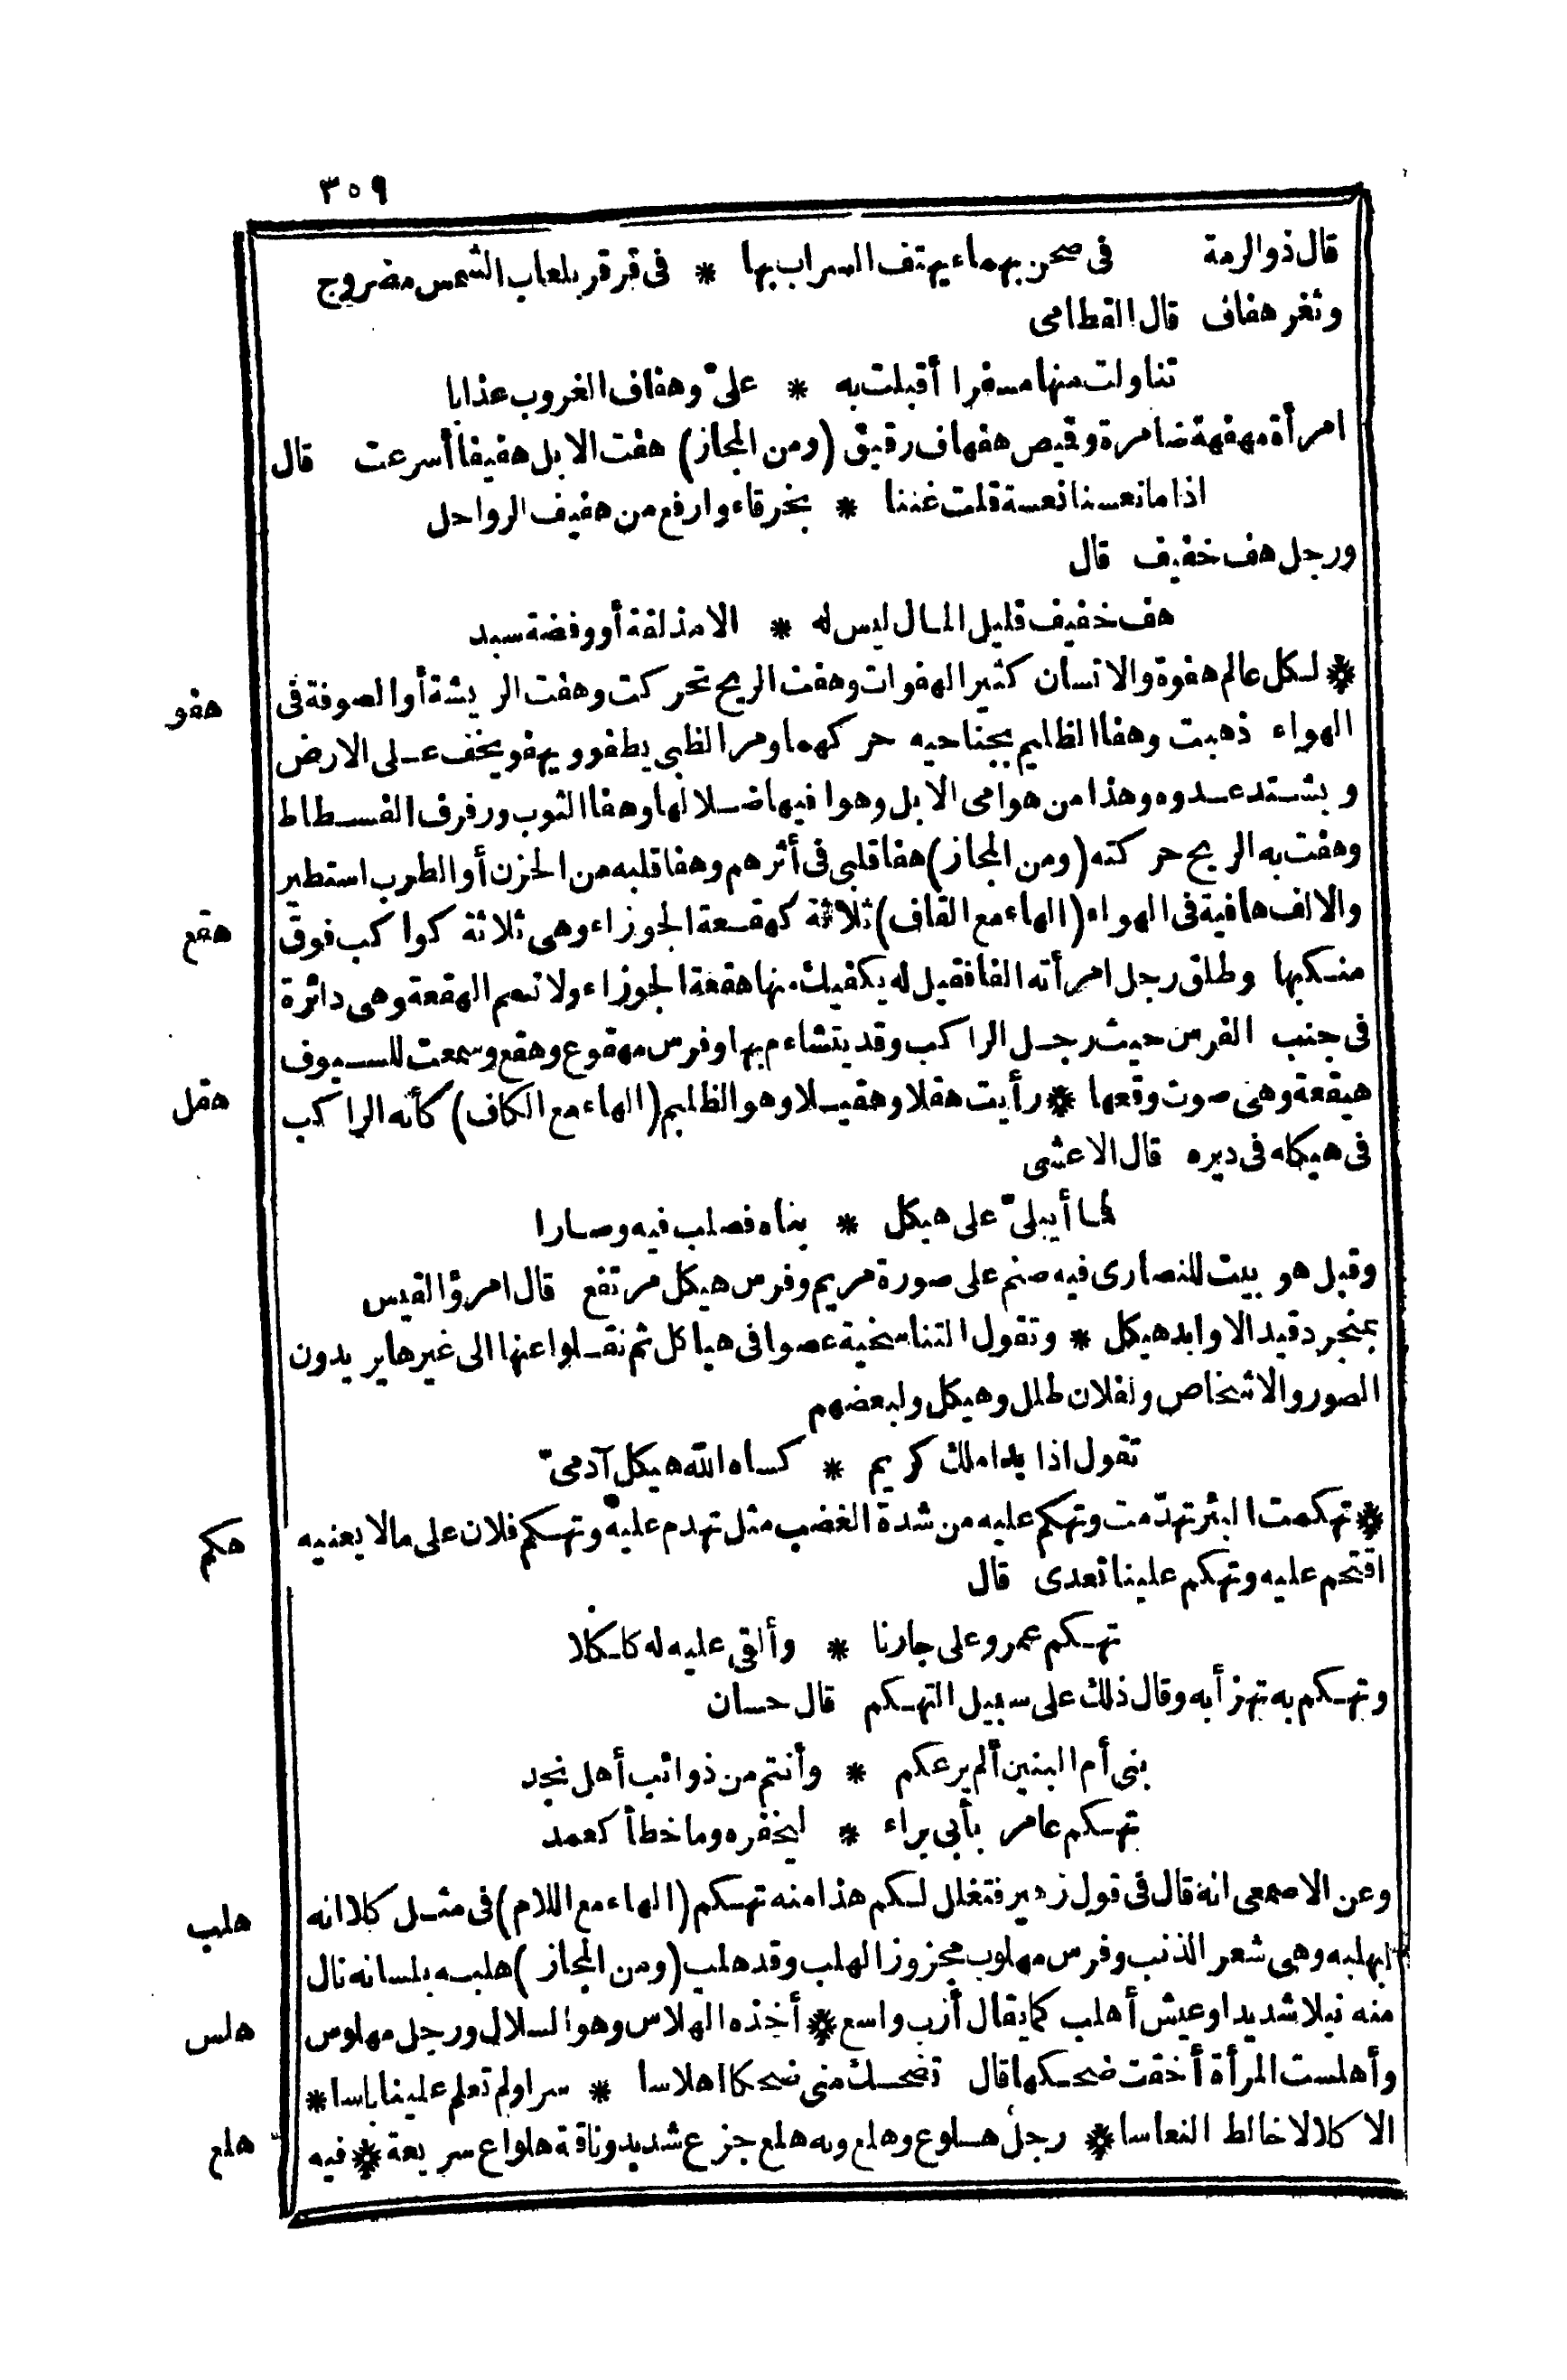 ٣٥٩
قال ذو الرمة في صحن بهماء يهتف السراب بها * في قرقر بلعاب الشمس مضروج
وثغر هفاف قال القطامى
تناولت منها مسفرا أقبلت به * علىّ وهفاف الغروب عذابا
امرأة مهفهة ضامرة وقميص هفهاف رقيق (ومن المجاز) هفت الابل هفيفا أسرعت قال
اذا ما نعسنا نعسة قلت غننا * بخرقاء وارفع من هفيف الرواحل
ورجل هف خفيف قال
هف خفيف قليل المال ليس له * الا مذلقة أو وفضة سبد
هفو
* لكل عالم هفوة والانسان كثير الهفوات وهفت الريح تحركت وهفت الريشة أو الصوفة في
الهواء ذهبت وهفا الظليم بجناحيه حركهما ومر الظبي يطفو ويهفو يخف على الارض
ويشتد عدوه وهذا من هوامى الابل وهوافيها ضلالها وهفا الثوب ورفرف الفسطاط
وهفت به الريح حركته (ومن المجاز) هفا قلبي في أثرهم وهفا قلبه من الحزن أو الطرب استطير
هقع
والالف هافية في الهواء (الهاء مع القاف) ثلاثة كهقعة الجوزاء وهى ثلاثة كواكب فوق
منكبها وطلق رجل امرأته ألفا فقيل له يكفيك منها هقعة الجوزاء ولا تعم الهقعة وهى دائرة
في جنب الفرس حيث رجل الراكب وقد يتشاءم بها وفرس مهقوع وهقع وسمعت للسيوف
هقل
هيقعة وهى صوت وقعها * رأيت هقلا وهقيلا وهو الظليم (الهاء مع الكاف) كأنه الراكب
في هيكله في ديره قال الاعشى
لما أيبلىّ على هيكل * بناه فصلب فيه وصارا
وقيل هو بيت للنصارى فيه صنم على صورة مريم وفرس هيكل مرتفع قال امرؤ القيس
بمنجرد قيد الاوابد هيكل * وتقول التناسخية عصوا في هياكل ثم نقلوا عنها الى غيرها يريدون
الصور والاشخاص ولفلان طلل وهيكل ولبعضهم
تقول اذا بدا ملك كريم * كساه الله هيكل آدمىّ
هكم
* تهكمت البئر تهدّمت وتهكم عليه من شدة الغضب مثل تهدم عليه وتهكم فلان على ما لا يعنيه
اقتحم عليه وتهكم علينا تعدى قال
تهكم عمرو على جارنا * وألقى عليه له كلكلا
وتهكم به تهزأ به وقال ذلك على سبيل التهكم قال حسان
بنى أم البنين ألم يرعكم * وأنتم من ذوائب أهل نجد
تهكم عامر بأبي براء * ليخفره وما خطأ كعمد
هلب
وعن الاصمعى انه قال في قول زهير فتغلل لكم هذا منه تهكم (الهاء مع اللام) في مثل كلا انه
لبهلبه وهى شعر الذنب وفرس مهلوب مجزوز الهلب وقد هلب (ومن المجاز) هلبه بلسانه نال
هلس
منه نيلا شديدا وعيش أهلب كما يقال أزب واسع * أخذه الهلاس وهو السلال ورجل مهلوس
وأهلست المرأة أخفت ضحكها قال تضحك منى ضحكا اهلاسا * سرا ولم تعلم علينا باسا *
هلع
الا كلالا خالط النعاسا * رجل هلوع وهلع وبه هلع جزع شديد وناقة هلواع سريعة * فيه